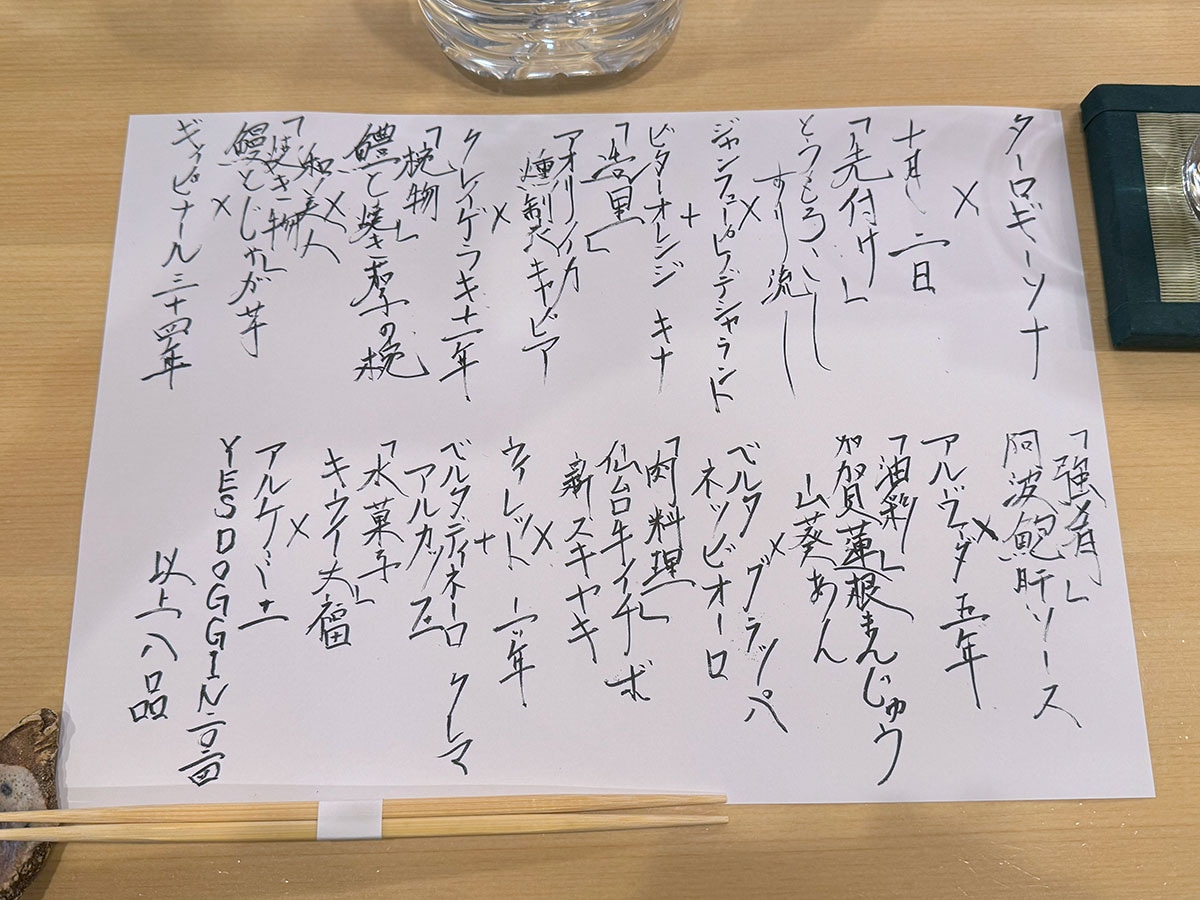 ターロギーソナ
×
十月二日
「先付け」
とうもろこし
すり流し
×
ジャンフューピラデシャラント
+
ビターオレンジ キナ
「造里」
アオリイカ
燻製キャビア
×
クレイゲラキ十一年
「椀物」
鱧と焼き茄子の椀
×
和美人
「焼き物」
鰻とじゃが芋
×
ギィピナール三十四年
「強肴」
阿波鮑肝ソース
×
アルヴェーダ五年
「油物」
加賀蓮根まんじゅう
山葵あん
×
ベルタ グラッパ
ネッビオーロ
「肉料理」
仙台牛イチボ
新スキヤキ
×
ウィレット 年
+
ベルタディネーロ クレマ
アルカッフェ
「水菓子」
キウイ大福
×
アルケミー
YESDOGGIN二〇二四
以上八品